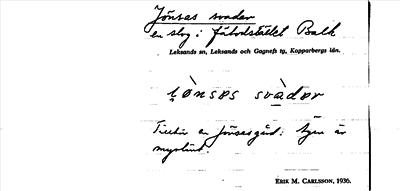 Jönsas svador
en slog i fäbodstället Balk
Leksands sn, Leksands och Gagnefs tg, Kopparbergs län.
jònsəs svàdər
Tillhör en Jönsasgård; ägen är
myrslind.
ERIK M. CARLSSON, 1936.